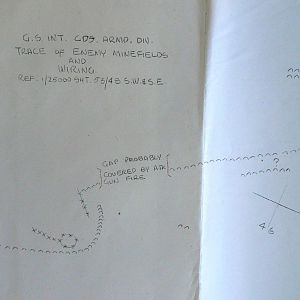 G.S. INT. GDS. ARMD. DIV.
TRACE OF ENEMY MINEFIELDS
AND
WIRING
REF. 1/25000 SHT. 53/48 S.W. & S.E.
GAP PROBABLY
COVERED BY ATK
GUN FIRE
?
?